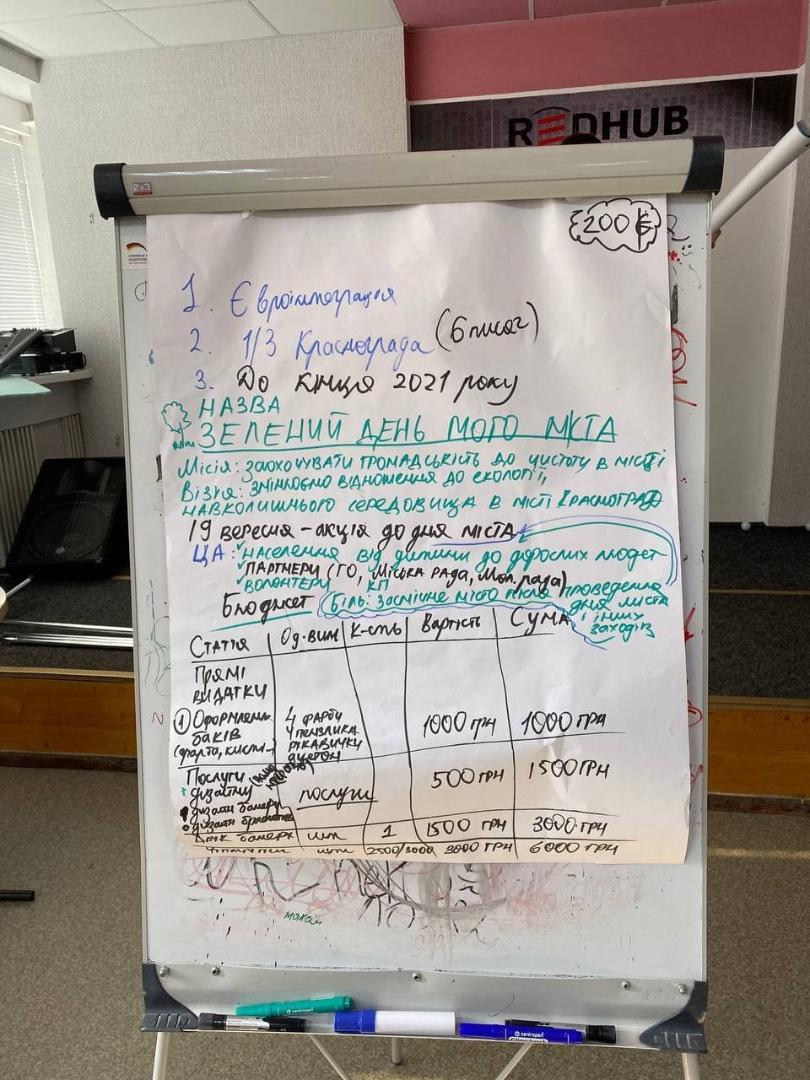 REDHUB
2x3
200 €
1. Євроінтеграція
2. 1/3 Краснограда (6 тисяч)
3. До кінця 2021 року
НАЗВА
ЗЕЛЕНИЙ ДЕНЬ МОГО МІСТА
Місія: ЗАОХОЧУВАТИ ГРОМАДСЬКІСТЬ ДО ЧИСТОТУ В МІСТІ
Візія: ЗМІНЮЄМО ВІДНОШЕННЯ ДО ЕКОЛОГІЇ,
НАВКОЛИШНЬОГО СЕРЕДОВИЩА В МІСТІ КРАСНОГРАД
19 вересня - акція до дня міста
ЦА: НАСЕЛЕННЯ ВІД ДИТИНИ ДО ДОРОСЛИХ ЛЮДЕЙ
ПАРТНЕРИ (ГО, МІСЬКА РАДА, Мол. рада)
ВОЛОНТЕРИ КП
Бюджет Біль: Засмічене місто після проведення
дня міста
і інших
заходів
Стаття Од.вим К-сть Вартість Сума
Прямі
видатки
1 Оформлення 4 фарби 1000 грн 1000 грн
баків 4 пензлика
(фарба, кисті) рукавички
ацетон
Послуги 500 грн 1500 грн
дизайну послуги
дизайн банеру
дизайн
Друк банера шт 1 1500 грн 3000 грн
шт 2500/3000 3000 грн 6000 грн
centropen
centropen